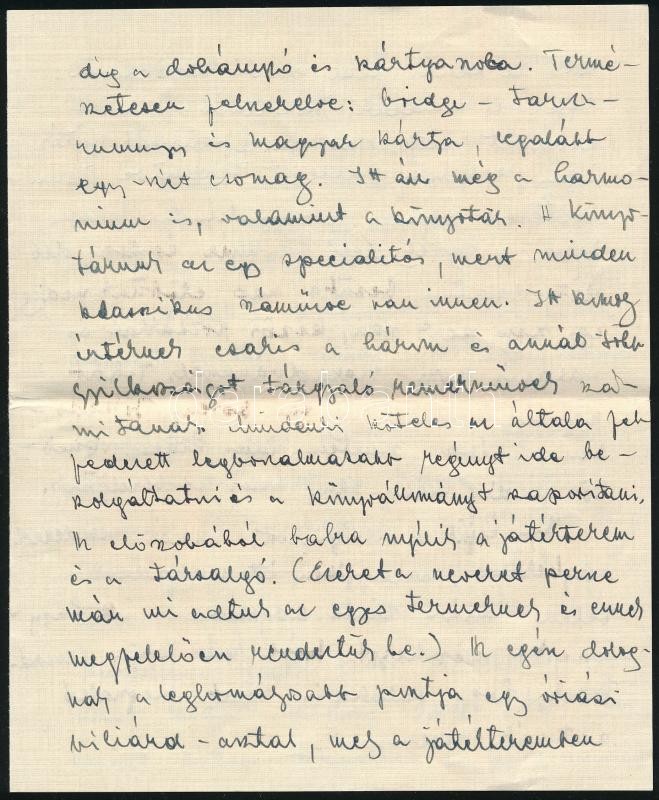 dig a dohányzó és kártyaszoba. Termé-
szetesen felszerelve: bridge - tarok -
rummy és magyar kártya, legalább
egy-két csomag. Itt áll még a harmo-
nium is, valamint a könyvtár. A könyv-
tárunk az egy specialitás, mert minden
klasszikus száműzve van innen. Itt komoly
csakis a három és annál több
gyilkosságot tárgyaló remekművek szá-
mitanak. Mindenki köteles az általa fel-
fedezett legborzalmasabb regényt ide be-
szolgáltatni és a könyvállományt szaporítani.
Az előszobából balra nyílik a játékterem
és a társalgó. (Ezeket a neveket persze
már mi adtuk az egyes termeknek és ennek
megfelelően rendeztük be.) Az egész dolog-
nak a legkomolyabb pontja egy óriási
biliárd-asztal, mely a játékteremben